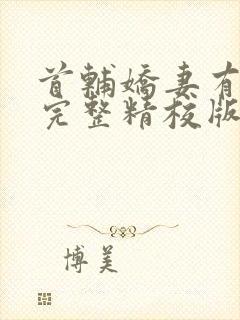 首輔嬌妻有
完整精校版
博美